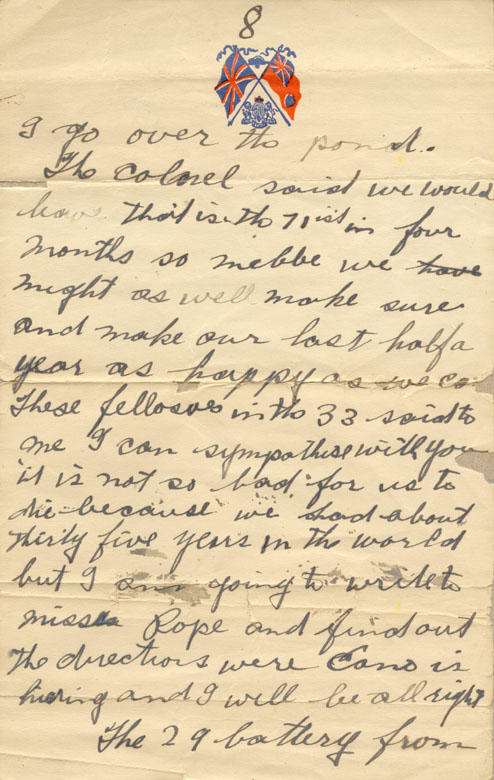 8
I go over the pond.
The colonel said we would
leave that is the 71ist in four
months so mebbe we have
might as well make sure
and make our last half a
year as happy as we can
These fellows in the 33 said to
me I can sympathise with you
it is not so bad for us to
die because we had about
thirty five years in the world
but I am going to write to
miss Pope and find out
the directions were Eano is
hiring and I will be all right
The 29 battery from